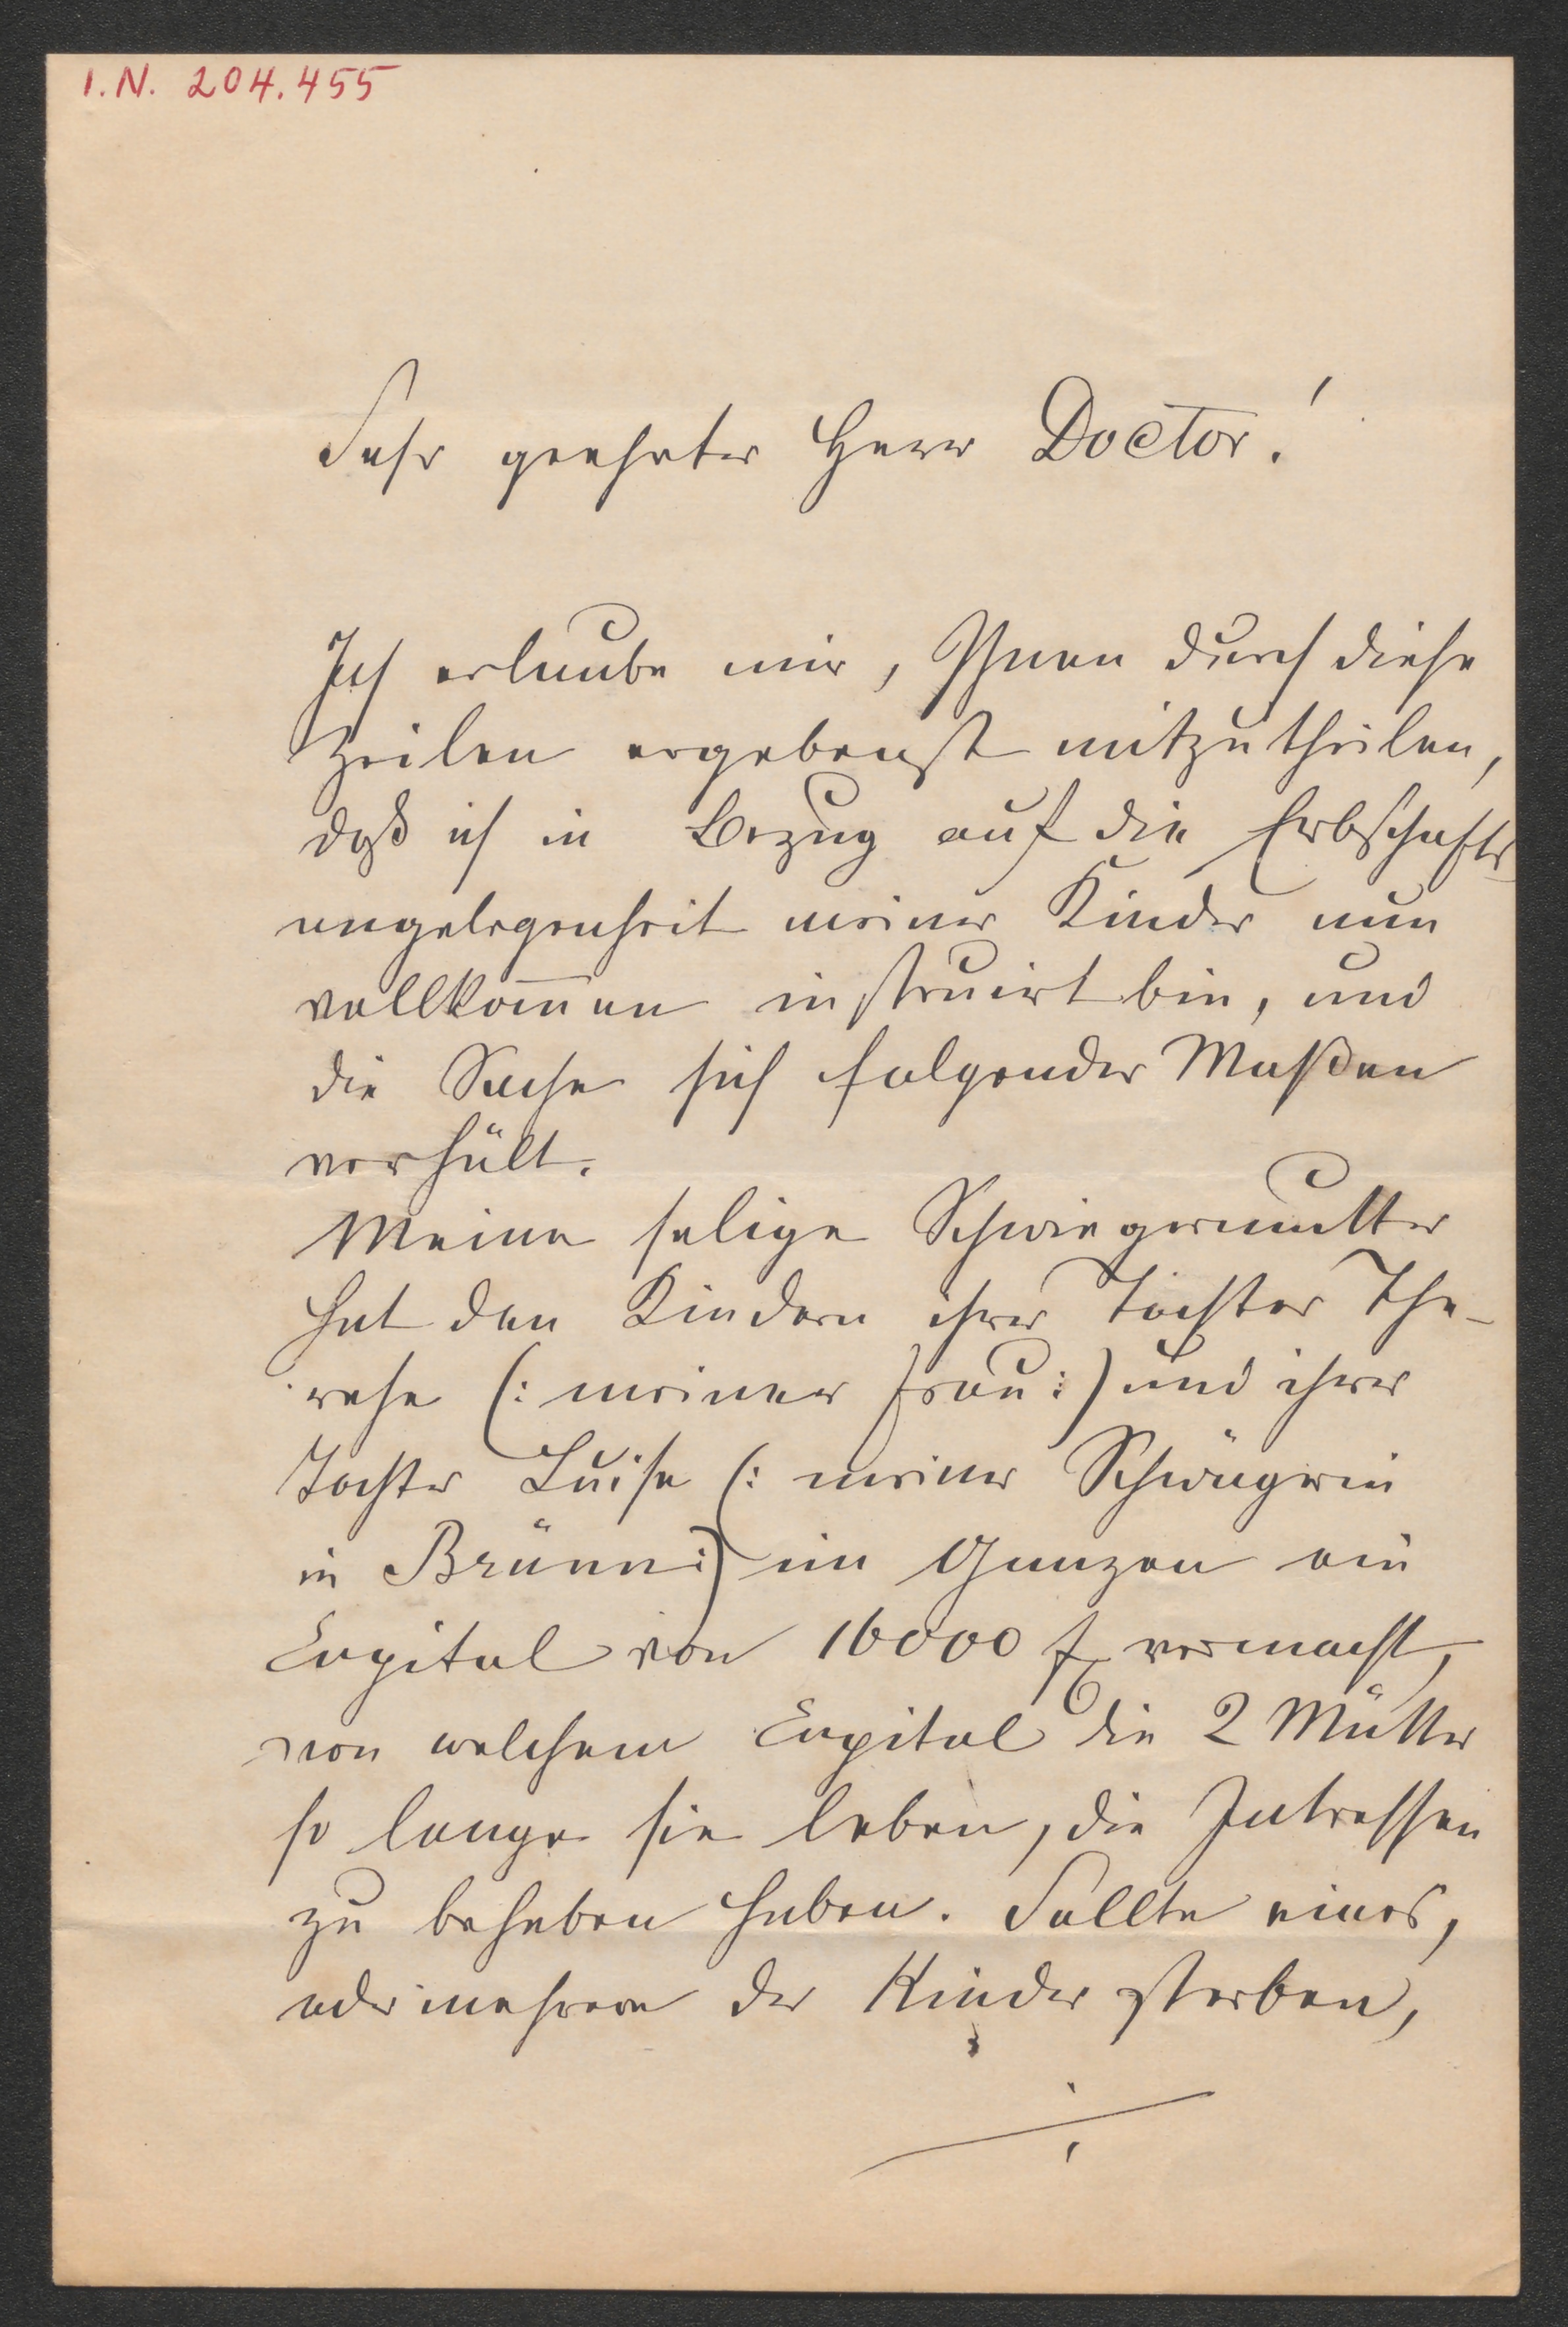 I.N. 204.455
Sehr geehrter Herr Doctor!
Ich erlaube mir, Ihnen durch diese
Zeilen ergebenst mitzutheilen,
daß ich in Bezug auf die Erbschafts-
angelegenheit meiner Kinder nun
vollkom̅en instruirt bin, und
die Sache sich folgender Maßen
verhält.
Meine selige Schwiegermutter
hat den Kindern ihrer Tochter The-
rese (: meiner Frau :) und ihrer
Tochter Luise (: meiner Schwägerin
in Brünn :) im Ganzen ein
Capital von 16000 f vermacht,
von welchem Capital die 2 Mütter
so lange sie leben, die Intressen
zu beheben haben. Sollte eines,
oder mehrere der Kinder sterben,
./.